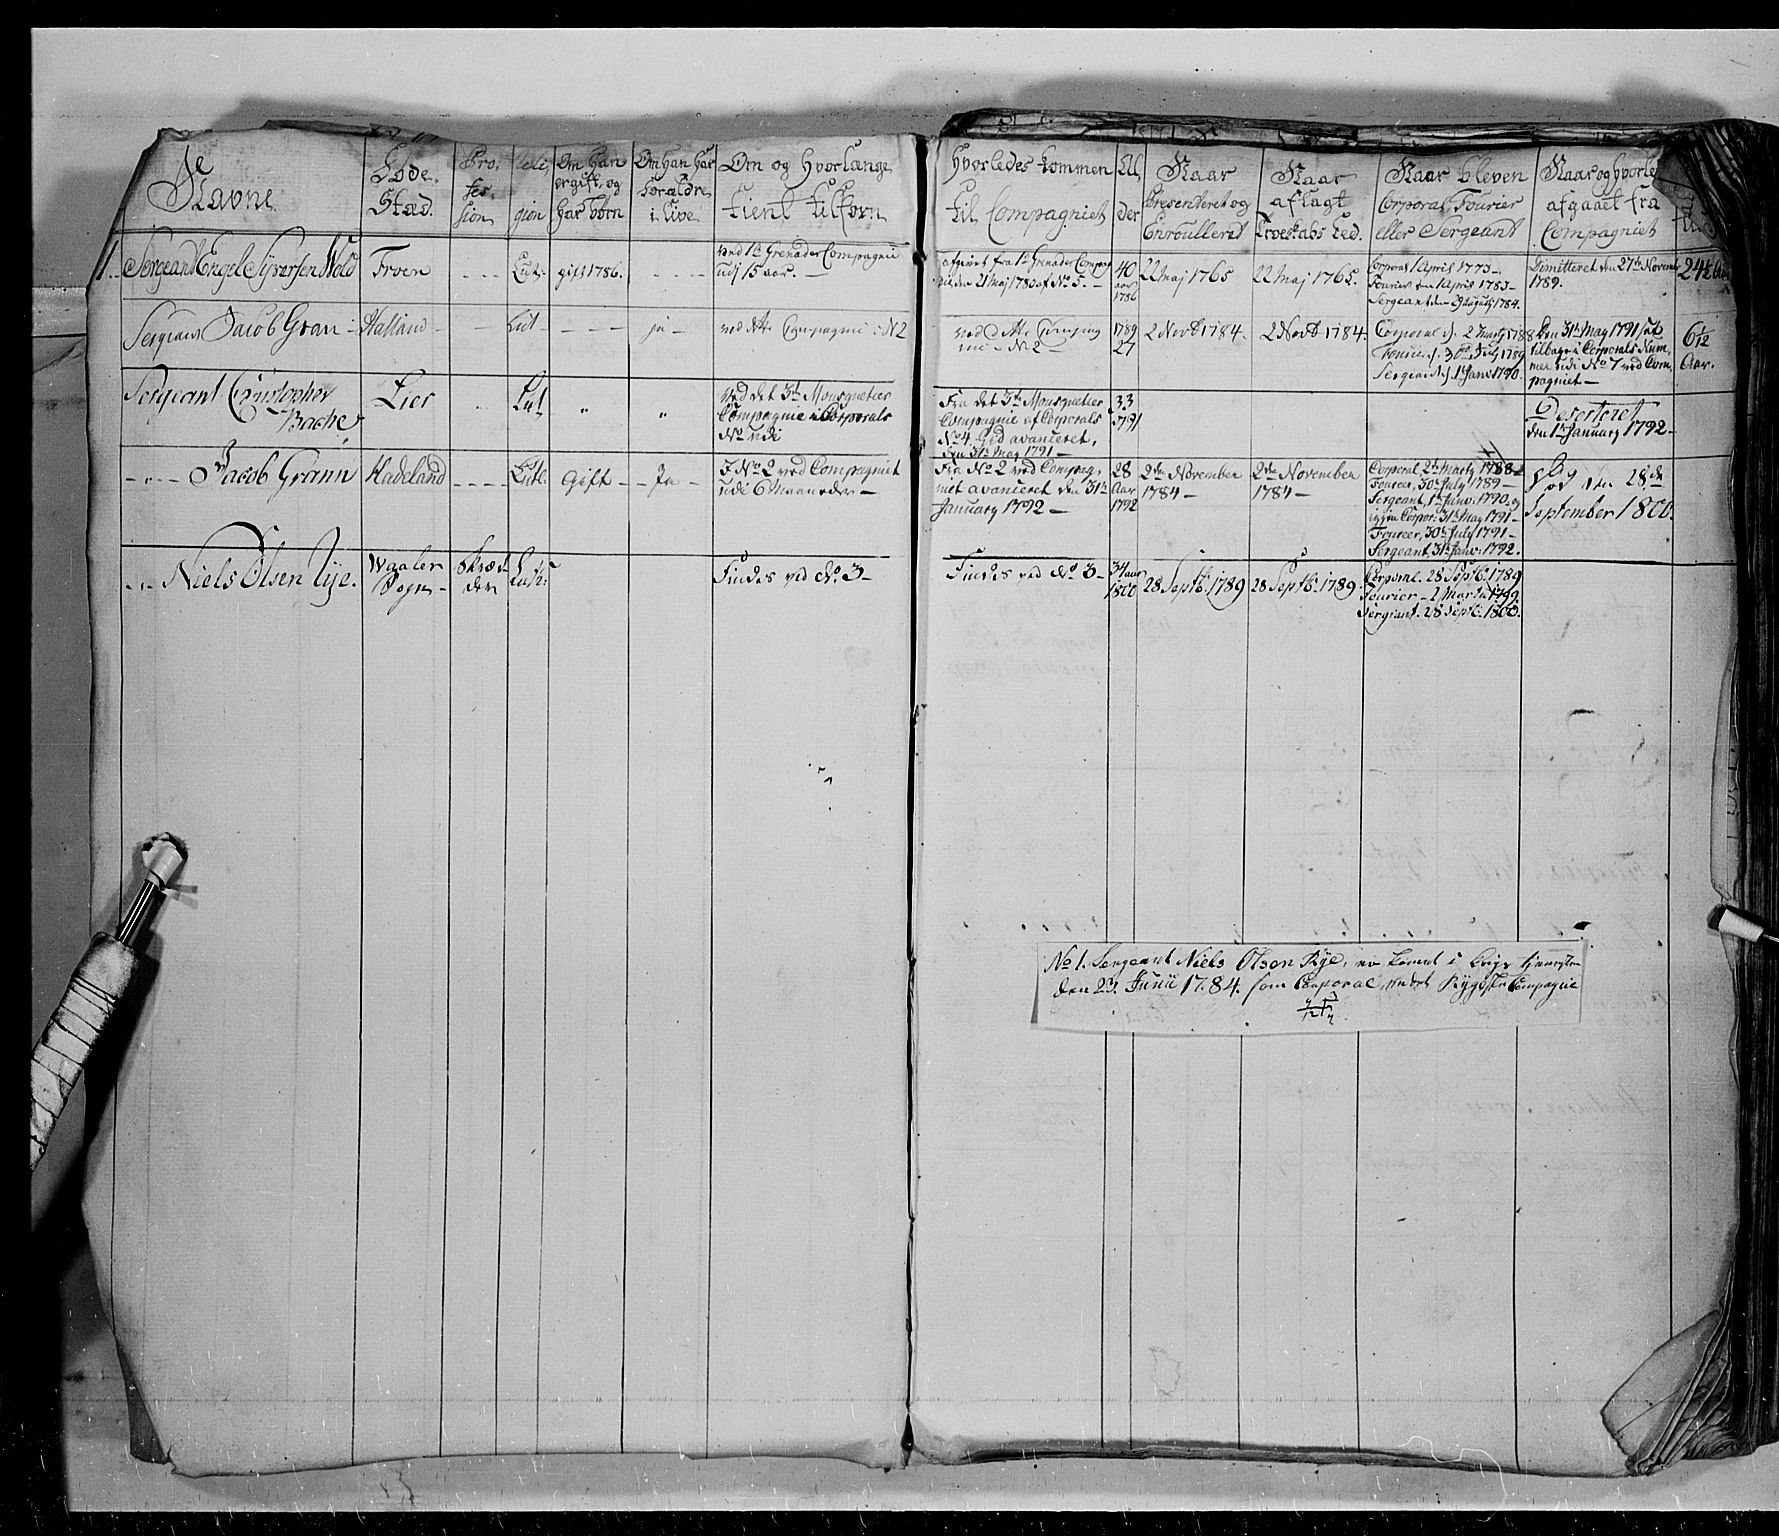 Navne
Føde-
Stæd.
Pro-
fes-
sion
Reli-
gion
Om han
er gift, og
har børn
Om han har
Forældre
i Live
Om og hvorlænge
tient tilforn
Hvorledes kommen
til Compagniet
Al-
der
Naar
Presenteret og
Enroulleret
Naar
aflagt
Troeskabs Eed.
Naar bleven
Corporal, Fourier
eller Sergeant
Naar og hvorle
afgaaet fra
Compagniet
1. Sergeant Engel Syversen Wold
Froen
Lut:
gift 1786.
ved 1te Grenader Compagnie
udj 15 aar.
afgivet fra 1te Grenader Compag
nie den 21 Maj 1780 af No 5.
40
aar
1786
22 Maj 1765
22 Maj 1765.
Corporal 1 April 1773
Fourier den 1 April 1783
Sergeant den 9 Augusty 1784.
Dimitteret den 27de Novemb
1789.
24½
Sergeant Jacob Gran
Hadland
Lut
ja
ved dette Compagnie No 2
ved dette Compag
nie No 2
1789
27
2 Novb 1784.
2 Novb 1784.
Corporal d. 2 Marty 1788
Fourier d. 30 July 1789
Sergeant d. 1 Janv: 1790.
Den 31te May 1791 sat
tilbage i Corporals Num-
mer udi No 7 ved Com-
pagniet
6½
Aar.
Sergeant Christopher
Bache
Lier
Lut
"
"
ved det 3die Mousqueteer
Compagnie Corporals
No udi
Fra det 3die Mousquetier
Compagnie af Corporals
No 4 hid avanceret,
den 31te May 1791
33
1791
Deserteret
den 1te January 1792
Jacob Grann
Hadeland
Luth.
Gift
Ja
I No 2 ved Compagniet
udi 6 Maaneder
Fra No 2 ved Compag-
niet avanceret den 31te
January 1792
28
Aar
1792
2den November
1784
2den November
1784
Corporal 2den Marty 1788
Foureer, 30te July 1789
Sergeant, 1te Janv: 1790, og
igjen Corpor: 31te May 1791
Foureer, 30te July 1791
Sergeant, 31te Janv: 1792.
død den 28de
September 1800.
Niels Olsen Rye.
Waaler
Sogn
Skræd-
der
Luth:
Findes ved No 3
Findes ved No 3
34 aar
1800
28 Septb. 1789
28 Septb. 1789.
Corporal. 28 Septb. 1789
Fourier 1 Marty 1799
Sergiant. 28 Septb. 1800.
No 1. Sergeant Niels Olsen Rye, er komet i Krigs tjeneste
den 23. Junii 1784. som Corporal, under Rygge Compagnie